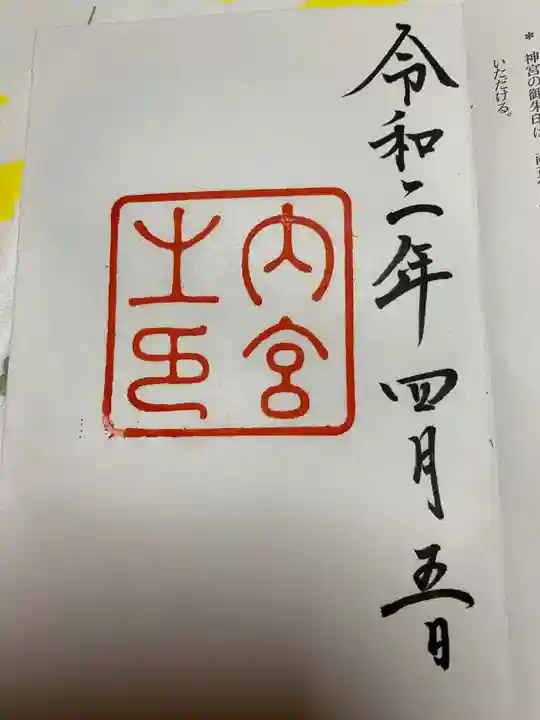 * 神宮の御朱印は、
いただける。
令和二年四月五日
内宮
之印